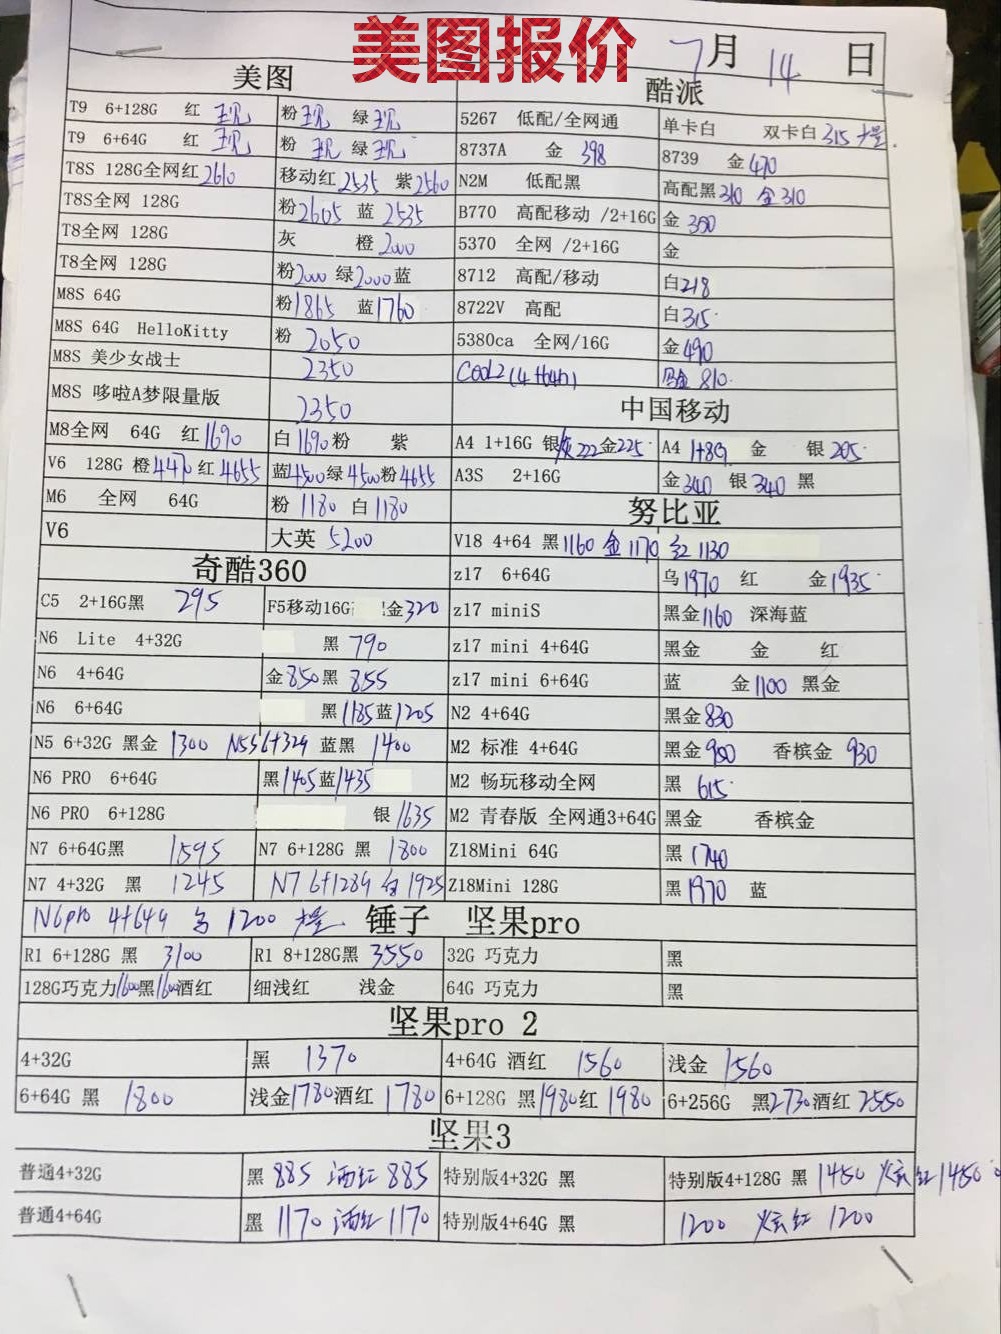 美图报价
7月 14 日
美图
酷派
T9 6+128G 红 现 粉 现 绿 现
5267 低配/全网通 单卡白 双卡白 315 大量
T9 6+64G 红 现 粉 现 绿 现
8737A 金 398 8739 金 470
T8S 128G全网红 2610 移动红 2535 紫 2560
N2M 低配黑 高配黑 310 金 310
T8S全网 128G 粉 2605 蓝 2535
B770 高配移动 /2+16G 金 350
T8全网 128G 灰 橙 2000
5370 全网 /2+16G 金
T8全网 128G 粉 2000 绿 2000 蓝
8712 高配/移动 白 218
M8S 64G 粉 1865 蓝 1760
8722V 高配 白 315
M8S 64G HelloKitty 粉 2050
5380ca 全网/16G 金 490
M8S 美少女战士 2350
COOL2 (4+64G) 810
M8S 哆啦A梦限量版 2350
中国移动
M8全网 64G 红 1690 白 1690 粉 紫
A4 1+16G 银 灰 222 金 225 A4 1+8G 金 银 205
V6 128G 橙 4470 红 4655 蓝 4500 绿 4500 粉 4655
A3S 2+16G 金 340 银 340 黑
M6 全网 64G 粉 1180 白 1180
努比亚
V6 大英 5200
V18 4+64 黑 1160 金 1170 红 1130
奇酷360
z17 6+64G 乌 1970 红 金 1935
C5 2+16G黑 295 F5移动16G 金 320
z17 miniS 黑金 1160 深海蓝
N6 Lite 4+32G 黑 790
z17 mini 4+64G 黑金 金 红
N6 4+64G 金 850 黑 855
z17 mini 6+64G 蓝 金 1100 黑金
N6 6+64G 黑 1185 蓝 1205
N2 4+64G 黑金 830
N5 6+32G 黑金 1300 N5S 6+32G 蓝黑 1400
M2 标准 4+64G 黑金 900 香槟金 930
N6 PRO 6+64G 黑 1405 蓝 1435
M2 畅玩移动全网 黑 615
N6 PRO 6+128G 银 1635
M2 青春版 全网通3+64G 黑金 香槟金
N7 6+64G黑 1595 N7 6+128G 黑 1800
Z18Mini 64G 黑 1740
N7 4+32G 黑 1245 N7 6+128G 白 1925
Z18Mini 128G 黑 1970 蓝
N6pro 4+64G 1200 大量 锤子 坚果pro
R1 6+128G 黑 3100 R1 8+128G黑 3550 32G 巧克力 黑
128G巧克力 1600 黑 1600 酒红 细浅红 浅金 64G 巧克力 黑
坚果pro 2
4+32G 黑 1370 4+64G 酒红 1560 浅金 1560
6+64G 黑 1800 浅金 1780 酒红 1780 6+128G 黑 1980 红 1980 6+256G 黑 2730 酒红 2550
坚果3
普通4+32G 黑 885 酒红 885 特别版4+32G 黑 特别版4+128G 黑 1450 炫红 1450
普通4+64G 黑 1170 酒红 1170 特别版4+64G 黑 1200 炫红 1200